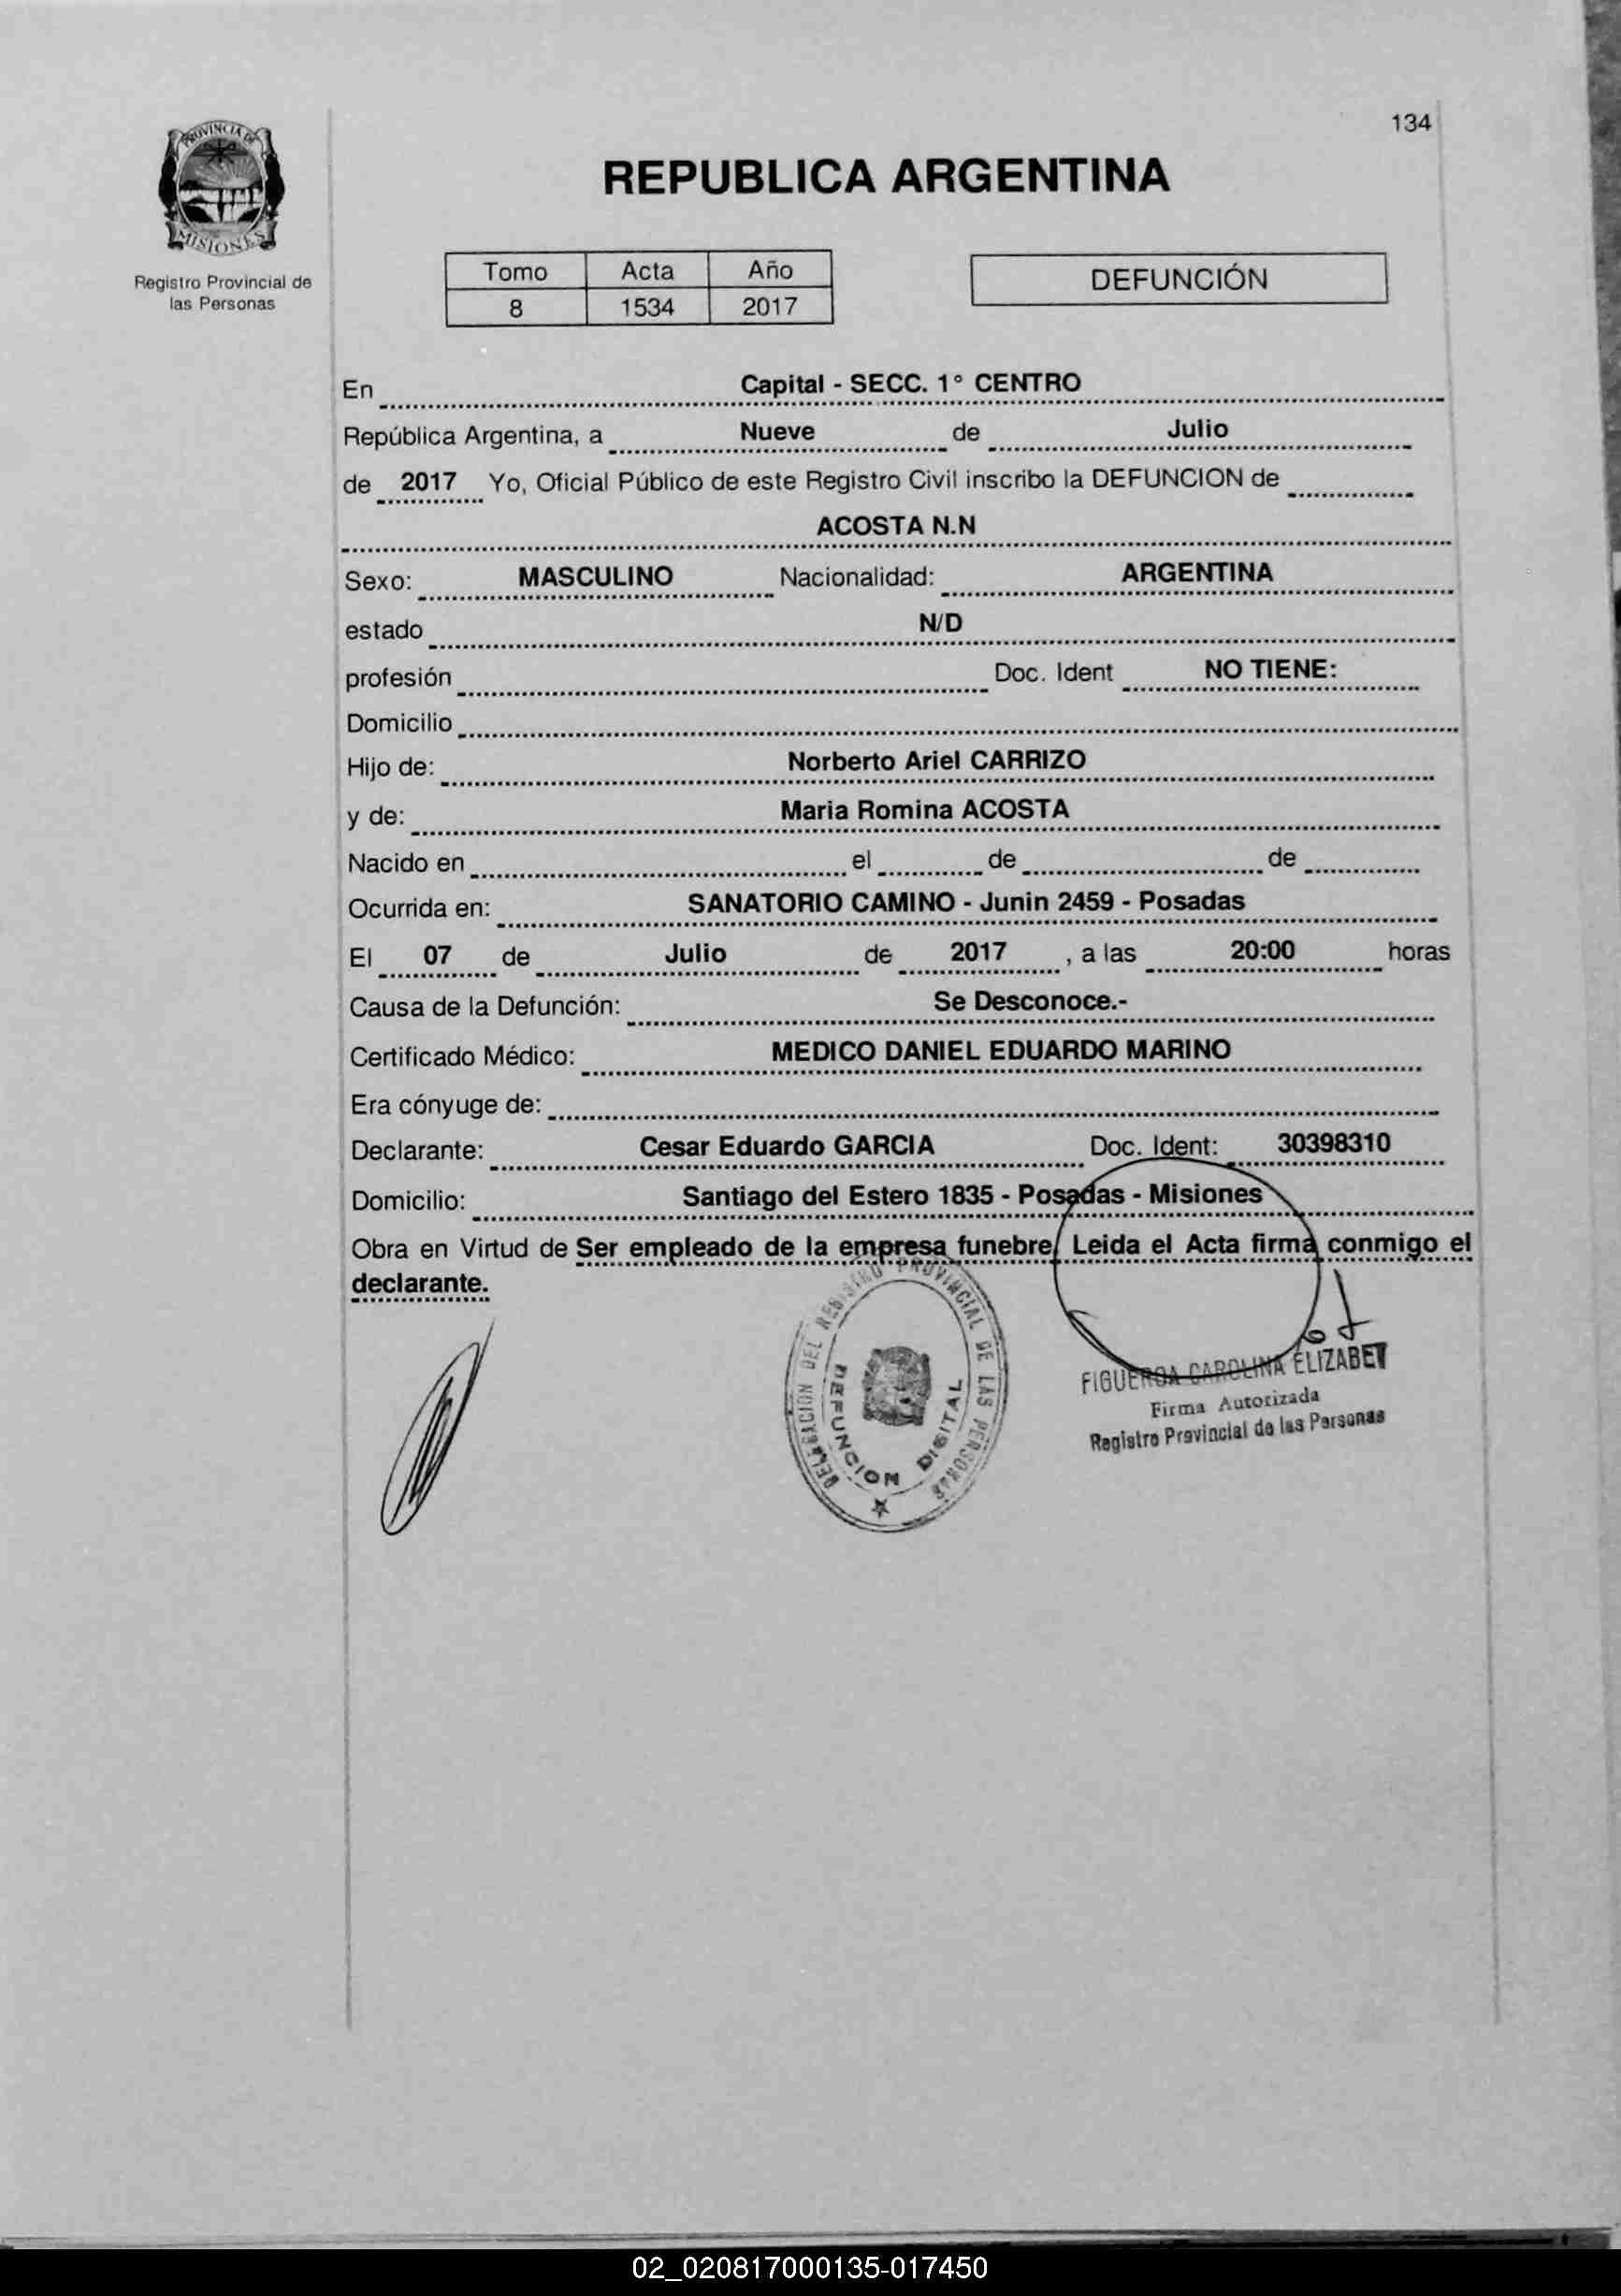 134
PROVINCIA DE
MISIONES
Registro Provincial de
las Personas
REPUBLICA ARGENTINA
Tomo Acta Año
8 1534 2017
DEFUNCIÓN
En Capital - SECC. 1° CENTRO
República Argentina, a Nueve de Julio
de 2017 Yo, Oficial Público de este Registro Civil inscribo la DEFUNCION de
ACOSTA N.N
Sexo: MASCULINO Nacionalidad: ARGENTINA
estado N/D
profesión Doc. Ident NO TIENE:
Domicilio
Hijo de: Norberto Ariel CARRIZO
y de: Maria Romina ACOSTA
Nacido en el de de
Ocurrida en: SANATORIO CAMINO - Junin 2459 - Posadas
El 07 de Julio de 2017 , a las 20:00 horas
Causa de la Defunción: Se Desconoce.-
Certificado Médico: MEDICO DANIEL EDUARDO MARINO
Era cónyuge de:
Declarante: Cesar Eduardo GARCIA Doc. Ident: 30398310
Domicilio: Santiago del Estero 1835 - Posadas - Misiones
Obra en Virtud de Ser empleado de la empresa funebre Leida el Acta firma conmigo el
declarante.
DELEGACION DEL REGISTRO PROVINCIAL DE LAS PERSONAS
DEFUNCION DIGITAL
FIGUEROA CAROLINA ELIZABET
Firma Autorizada
Registro Provincial de las Personas
02_020817000135-017450